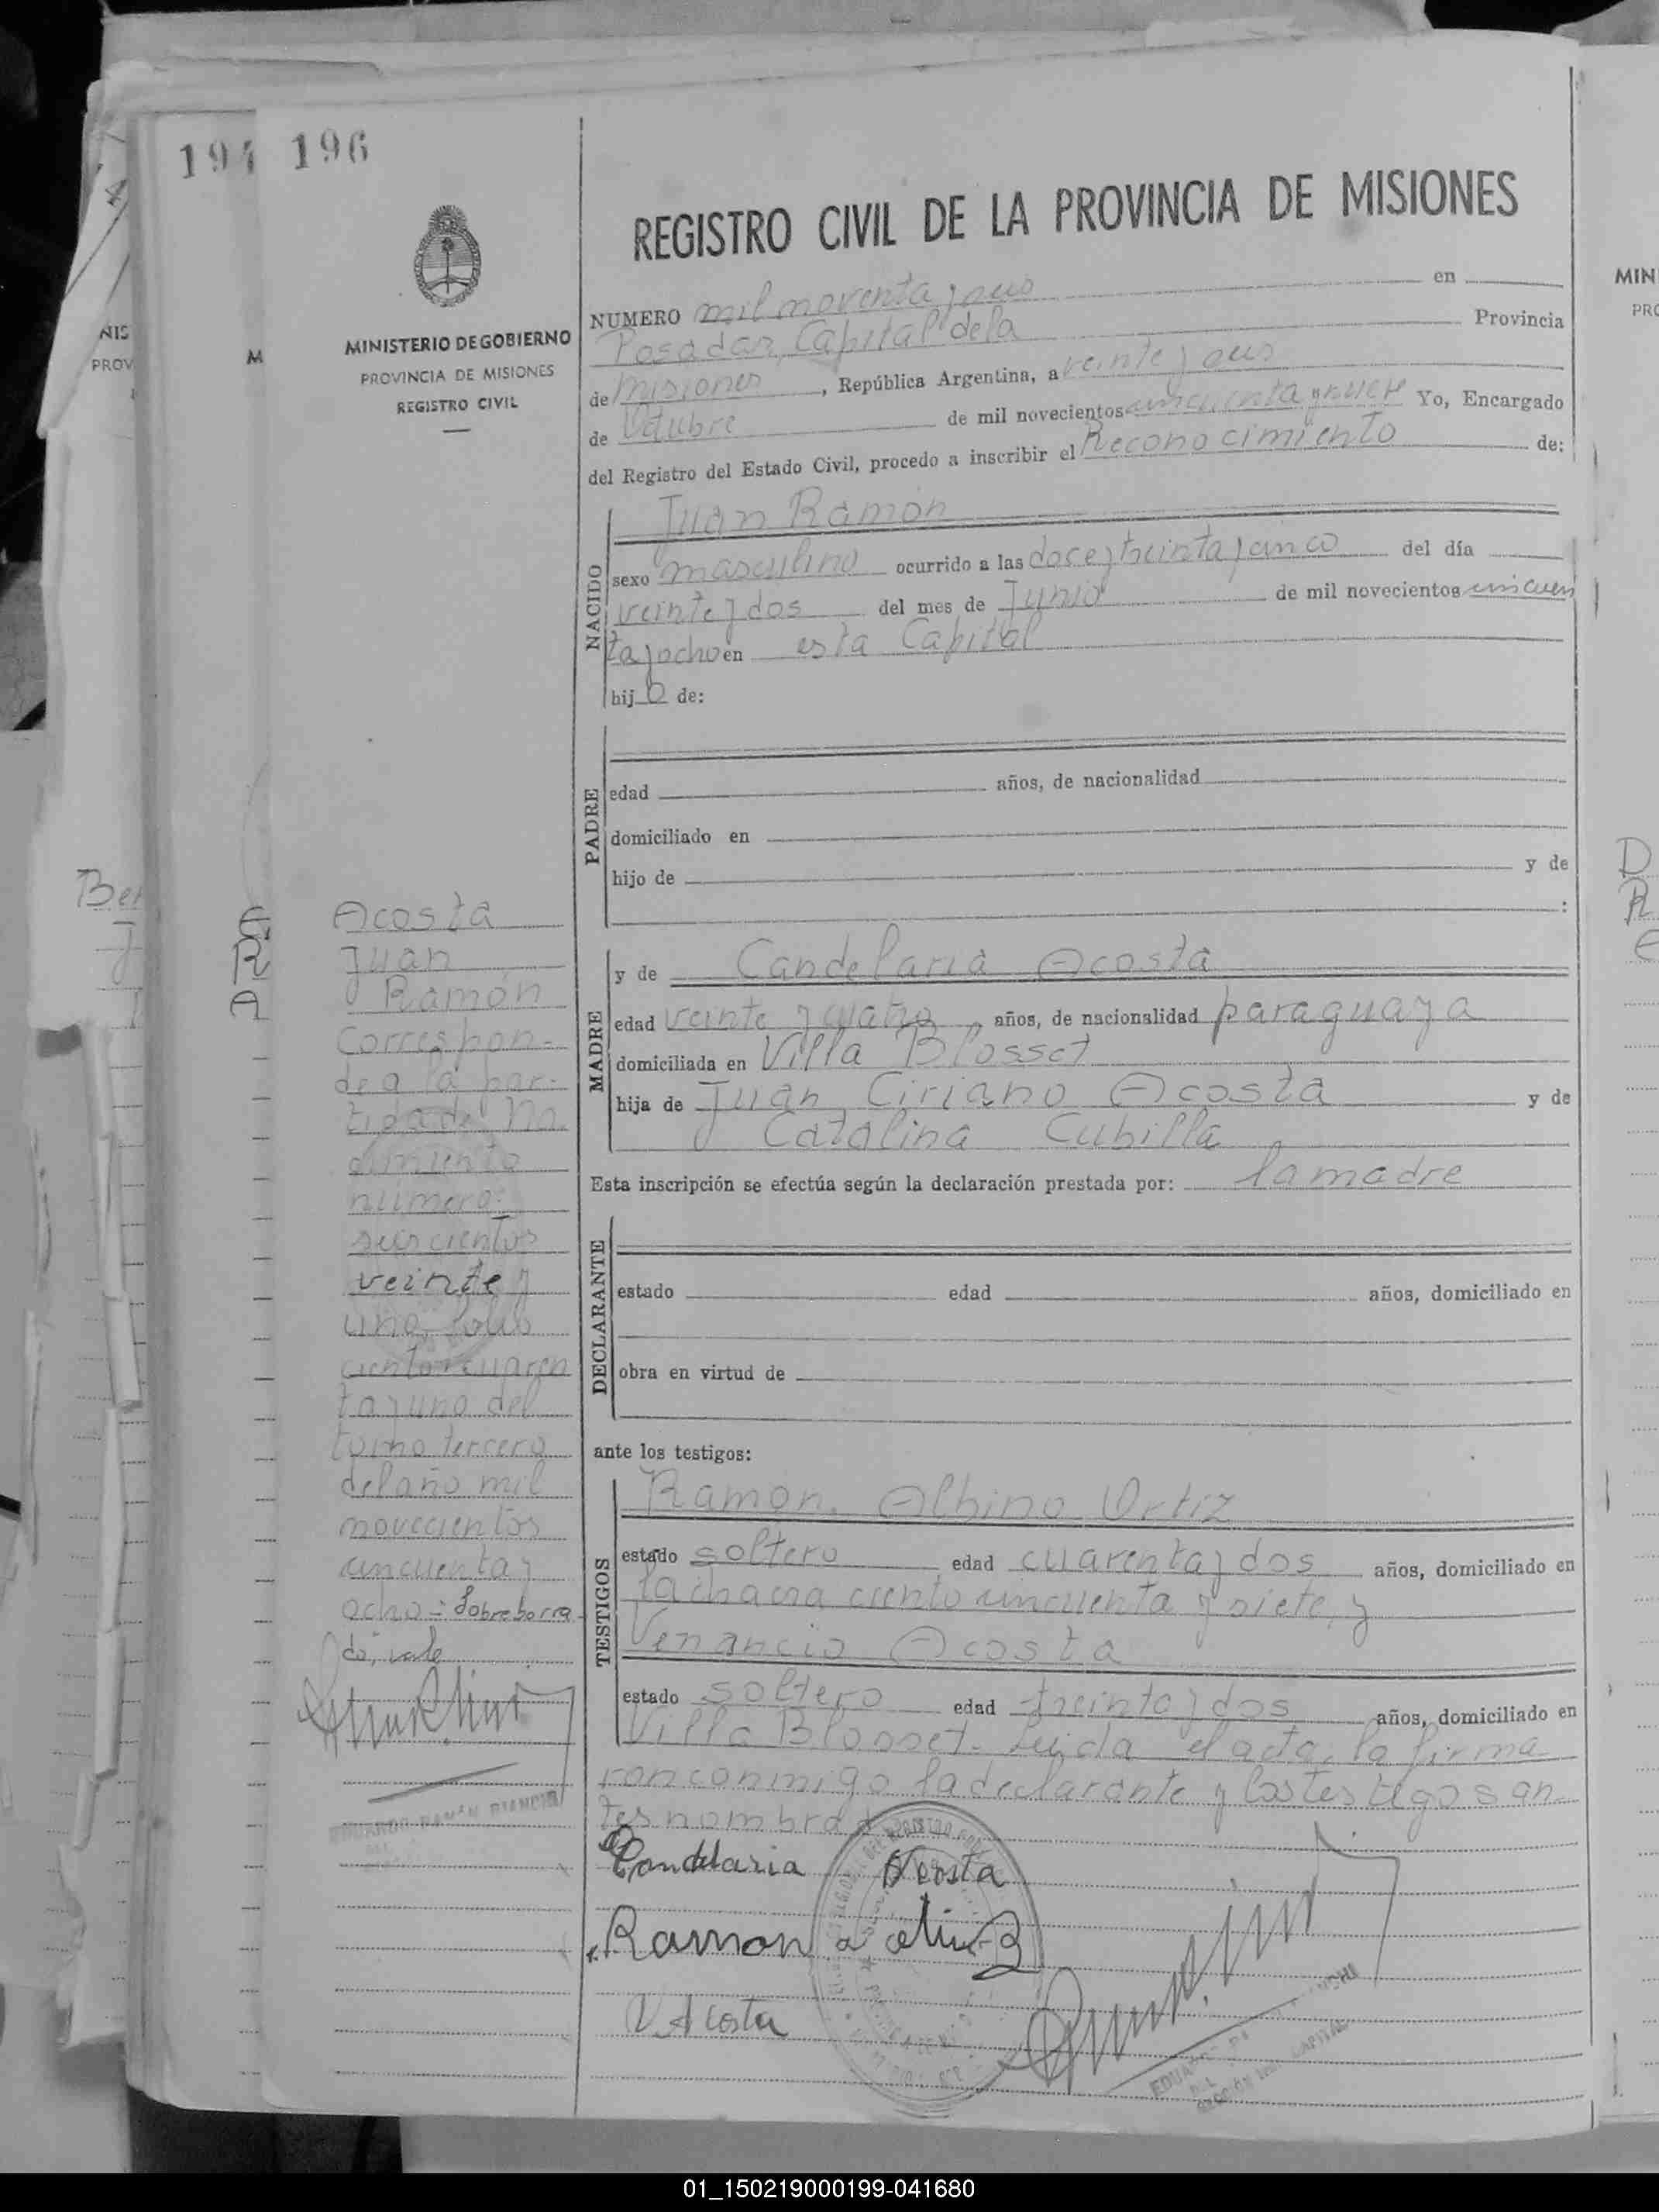 196
REGISTRO CIVIL DE LA PROVINCIA DE MISIONES
MINISTERIO DE GOBIERNO
PROVINCIA DE MISIONES
REGISTRO CIVIL
NUMERO mil noventa y seis en
Posadas, Capital de la Provincia
de Misiones, República Argentina, a veinte y seis
de Octubre de mil novecientos cincuenta y nueve Yo, Encargado
del Registro del Estado Civil, procedo a inscribir el Reconocimiento de:
NACIDO
Juan Ramón
sexo masculino ocurrido a las doce y treinta y cinco del día
veinte y dos del mes de Junio de mil novecientos cincuen
ta y ocho en esta Capital
hijo de:
PADRE
edad años, de nacionalidad
domiciliado en
hijo de y de
:
MADRE
y de Candelaria Acosta
edad veinte y cuatro, años, de nacionalidad paraguaya
domiciliada en Villa Blosset
hija de Juan Ciriano Acosta y de
Catalina Cubilla
Esta inscripción se efectúa según la declaración prestada por: la madre
DECLARANTE
estado edad años, domiciliado en
obra en virtud de
ante los testigos:
TESTIGOS
Ramón Albino Ortiz
estado soltero edad cuarenta y dos años, domiciliado en
la chacra ciento cincuenta y siete, y
Venancio Acosta
estado soltero edad treinta y dos años, domiciliado en
Villa Blosset. Leída el acta, la firma
ron conmigo la declarante y los testigos an
tes nombrados
Candelaria Acosta
Ramon a
V. Acosta
Acosta
Juan
Ramón
Correspon-
de a la par-
tida de Na
cimiento
número:
seiscientos
veinte y
uno, folio
ciento cuaren
ta y uno del
tomo tercero
del año mil
novecientos
cincuenta y
ocho = Sobreborra
do, vale
EDUARDO RAMÓN BIANCHI
01_150219000199-041680